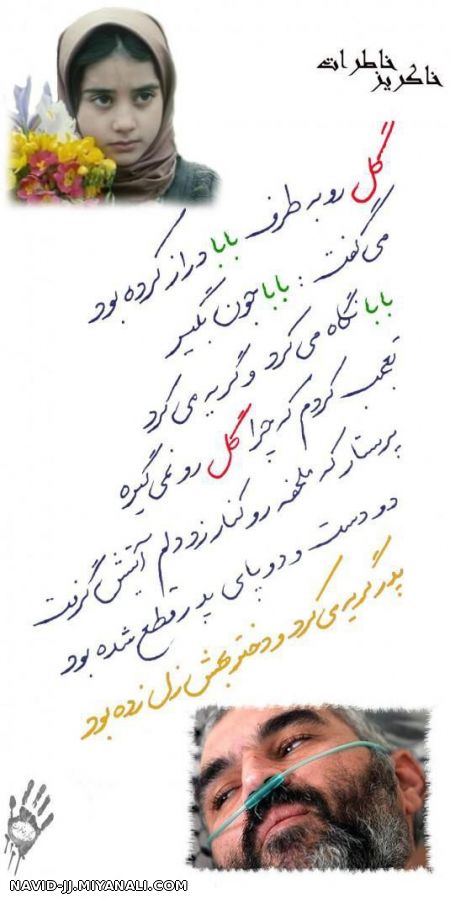 خاطرات
خاکریز
گل رو به طرف بابا دراز کرده بود
می گفت : بابا جون بگیر
بابا نگاه می کرد و گریه می کرد
تعجب کردم که چرا گل رو نمی گیره
پرستار که ملحفه رو کنار زد دلم آتیش گرفت
دو دست و دو پای پدر قطع شده بود
پدر گریه می کرد و دختر بهش زل زده بود
NAVID-JJ.MIYANALI.COM